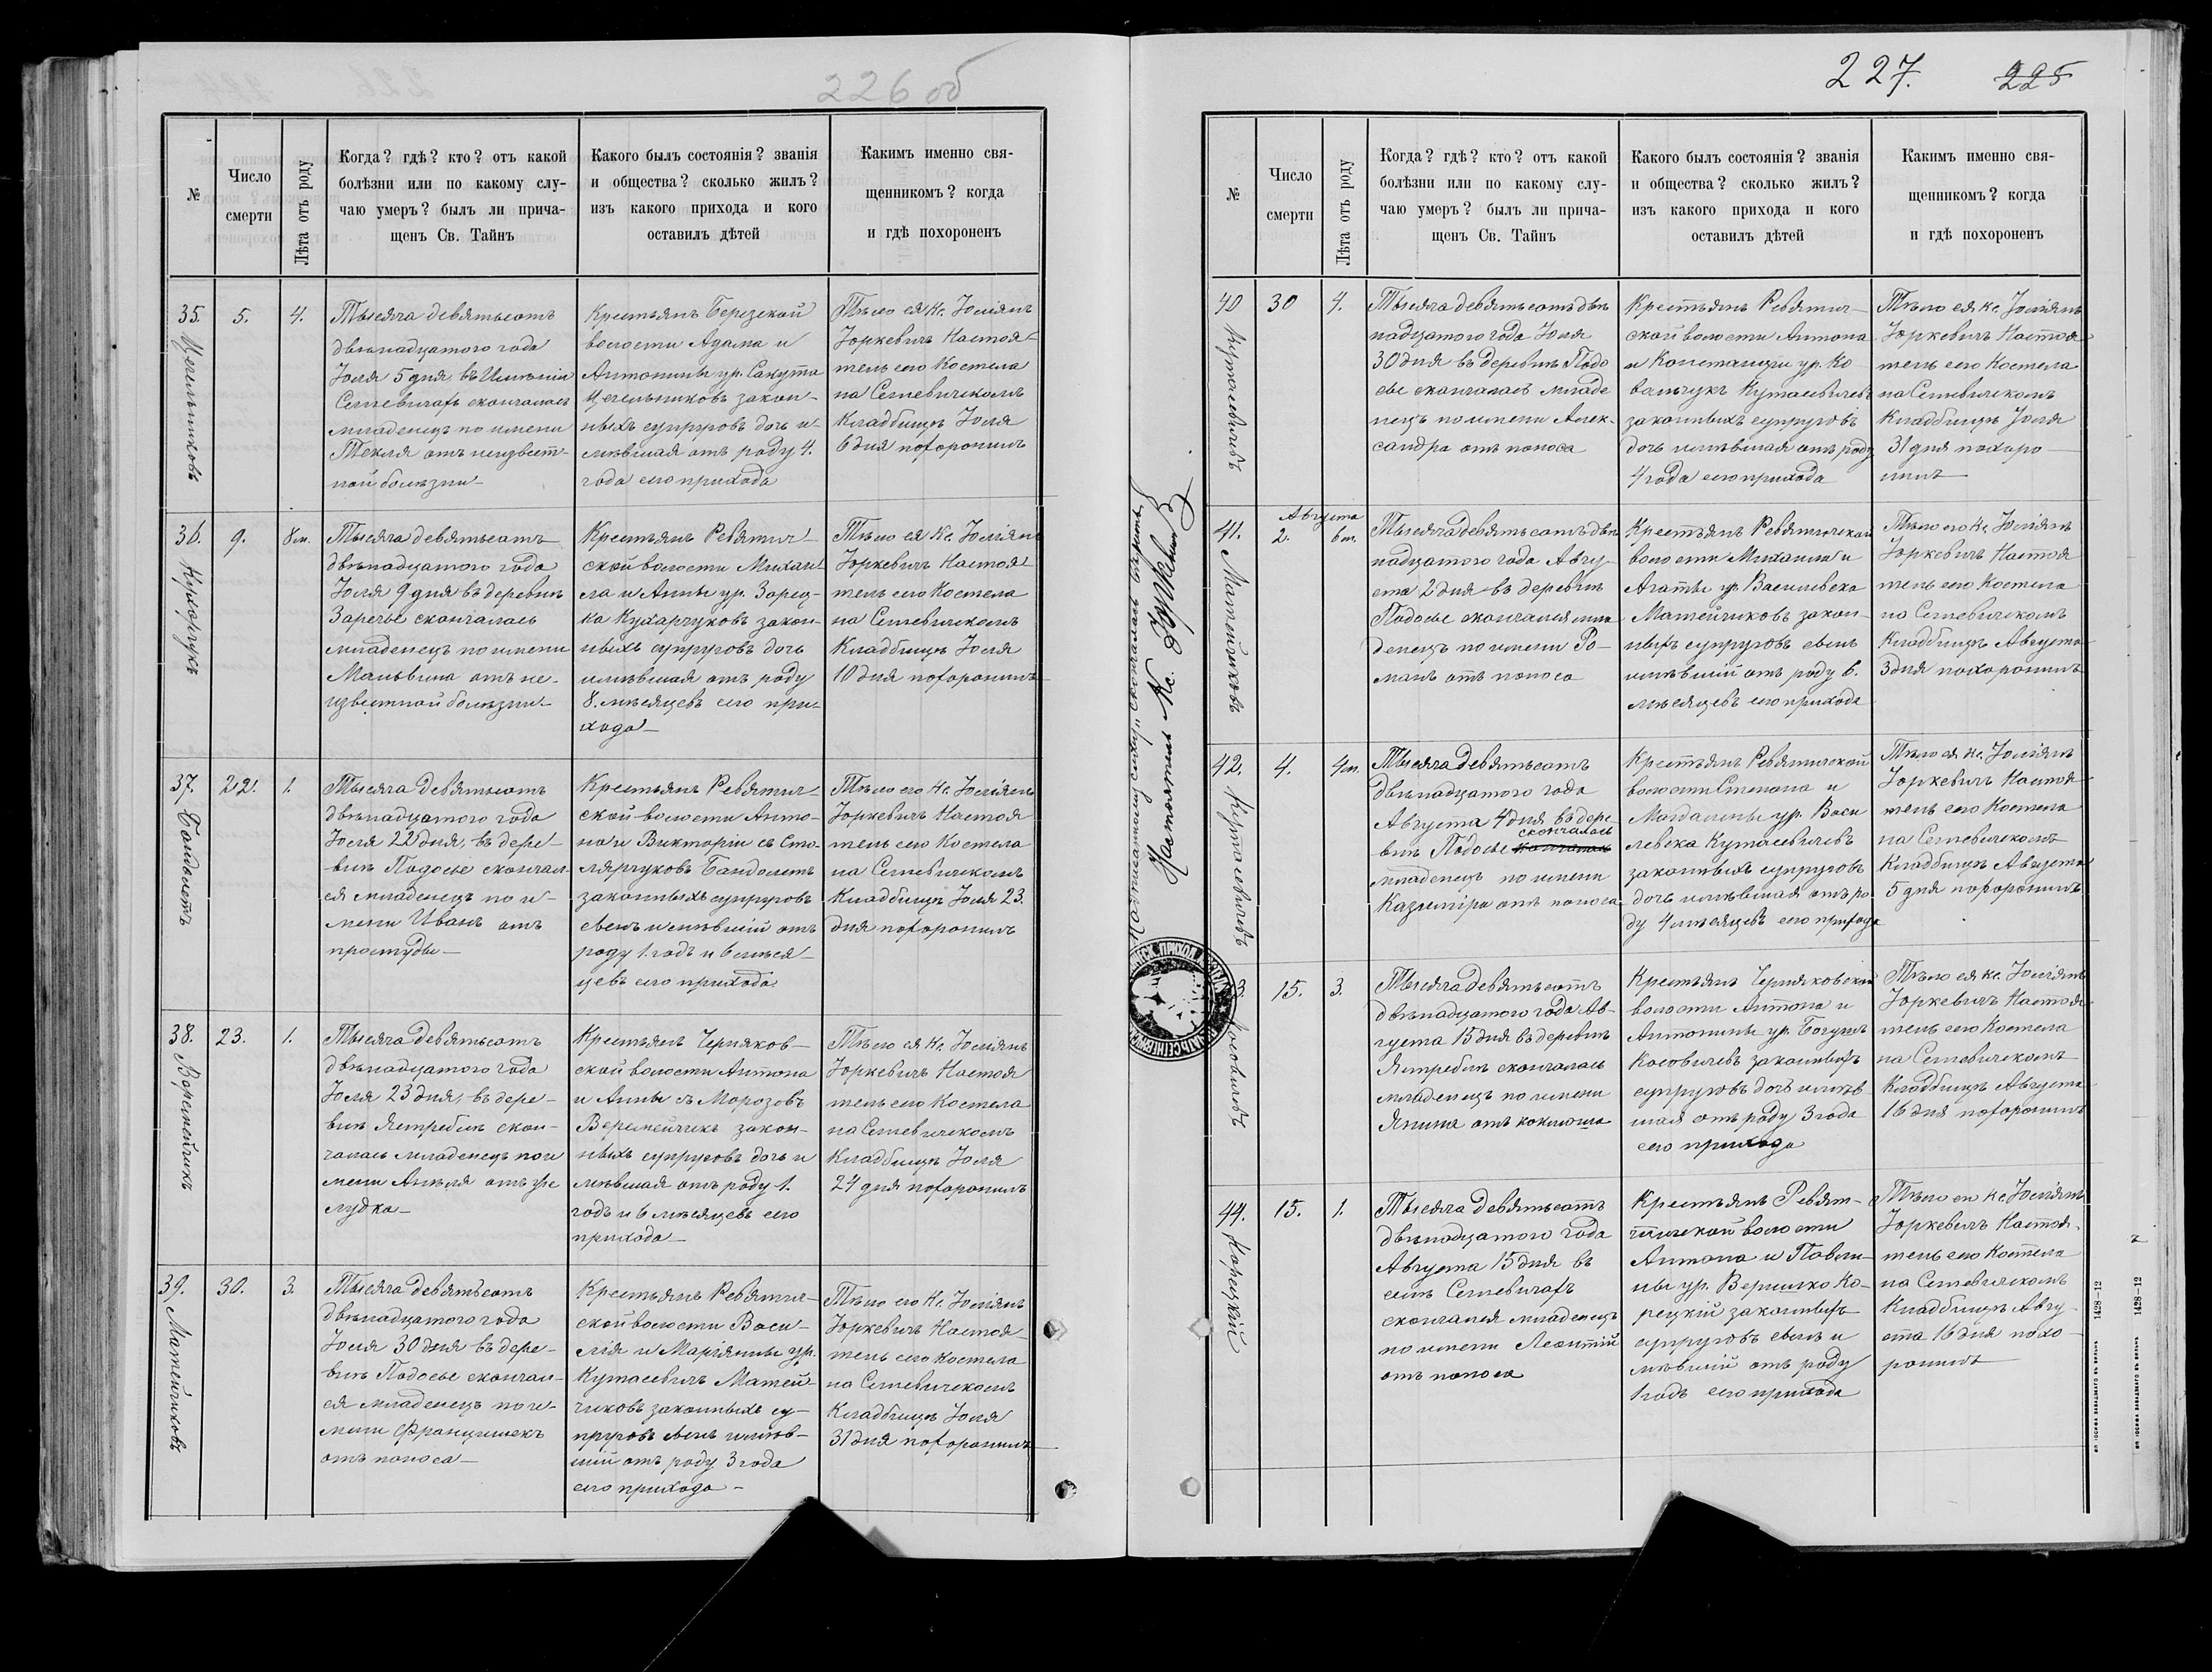 226 об
№
Число
смерти
Лѣта отъ роду
Когда? гдѣ? кто? отъ какой
болѣзни или по какому слу-
чаю умеръ? былъ ли прича-
щенъ Св. Тайнъ
Какого былъ состоянія? званія
и общества? сколько жилъ?
изъ какого прихода и кого
оставилъ дѣтей
Какимъ именно свя-
щенникомъ? когда
и гдѣ похороненъ
35.
5.
4.
Тысяча девятьсотъ
двѣнадцатого года
Юля 5 дня въ Имѣніи
Сегневичахъ скончалась
младенецъ по имени
Текля отъ неизвест-
ной болѣзни
Крестьянъ Березской
волости Адама и
Антонины ур. Сакута
закон-
ныхъ супруговъ дочь и-
мѣвшая отъ роду 4.
года сего прихода
Тѣло ея Кс. Юліянъ
Юркевичъ Настоя-
тель сего Костела
на Сегневичскомъ
Кладбищѣ Юля
6 дня похоронилъ
36.
9.
8 м.
Тысяча девятьсотъ
двѣнадцатого года
Юля 9 дня въ деревнѣ
Заречье скончалась
младенецъ по имени
Мальвина отъ не-
известной болѣзни
Крестьянъ Ревятич-
ской волости Михаи-
ла и Анны ур. Зарец-
ка Кухарчуковъ закон-
ныхъ супруговъ дочь
имѣвшая отъ роду
8. мѣсяцевъ сего при-
хода
Тѣло ея Кс. Юліянъ
Юркевичъ Настоя
тель сего Костела
на Сегневичскомъ
Кладбищѣ Юля
10 дня похоронилъ
37.
Бандолетъ
22.
1.
Тысяча девятьсотъ
двѣнадцатого года
Юля 22 дня, въ дере-
внѣ Подосье скончал
ся младенецъ по и-
мени Иванъ отъ
простуды
Крестьянъ Ревятич-
ской волости Анто-
на и Викторіи съ Сто-
лярчуковъ Бандолетъ
законныхъ супруговъ
сынъ имѣвшій отъ
роду 1. годъ и 6 мѣся-
цевъ сего прихода
Тѣло его Кс. Юліянъ
Юркевичъ Настоя
тель сего Костела
на Сегневичскомъ
Кладбищѣ Юля 23.
дня похоронилъ
38.
Веремейчикъ
23.
1.
Тысяча девятьсотъ
двѣнадцатого года
Юля 23 дня, въ дере-
внѣ Ястребль скон-
чалась младенецъ по и
мени Анѣля отъ же
лудка
Крестьянъ Черняков-
ской волости Антона
и Анны съ Морозовъ
Веремейчикъ закон-
ныхъ супруговъ дочь и
мѣвшая отъ роду 1.
годъ и 6 мѣсяцевъ сего
прихода
Тѣло ея Кс. Юліянъ
Юркевичъ Настоя
тель сего Костела
на Сегневичскомъ
Кладбищѣ Юля
24 дня похоронилъ
39.
Матейчиковъ
30.
3.
Тысяча девятьсотъ
двѣнадцатого года
Юля 30 дня въ дере-
внѣ Подосье скончал-
ся младенецъ по и-
мени Францишекъ
отъ поноса
Крестьянъ Ревятич-
ской волости Васи-
лія и Маріянны ур.
Куталевичъ Матей-
чиковъ законныхъ су-
пруговъ сынъ имѣв-
шій отъ роду 3 года
сего прихода
Тѣло его Кс. Юліянъ
Юркевичъ Настоя-
тель сего Костела
на Сегневичскомъ
Кладбищѣ Юля
31 дня похоронилъ
Настоятель Кс. Юркевичъ
227.
225
№
Число
смерти
Лѣта отъ роду
Когда? гдѣ? кто? отъ какой
болѣзни или по какому слу-
чаю умеръ? былъ ли прича-
щенъ Св. Тайнъ
Какого былъ состоянія? званія
и общества? сколько жилъ?
изъ какого прихода и кого
оставилъ дѣтей
Какимъ именно свя-
щенникомъ? когда
и гдѣ похороненъ
40
Куталевичевъ
30
4.
Тысяча девятьсотъ двѣ
надцатого года Юля
30 дня въ деревнѣ Подо
сье скончалась младе
нецъ по имени Алек-
сандра отъ поноса
Крестьянъ Ревятич-
ской волости Антона
и Констанціи ур. Ко
вальчукъ Куталевичевъ
законныхъ супруговъ
дочь имѣвшая отъ роду
4 года сего прихода
Тѣло ея Кс. Юліянъ
Юркевичъ Настоя
тель сего Костела
на Сегневичскомъ
Кладбищѣ Юля
31 дня похоро
нилъ
41.
Матейчиковъ
Августа
2.
6 м.
Тысяча девятьсотъ двѣ
надцатого года Авгу-
ста 2 дня въ деревнѣ
Подосье скончался мла
денецъ по имени Ро-
манъ отъ поноса
Крестьянъ Ревятичской
волости Михаила и
Агаты ур. Василевска
Матейчиковъ закон-
ныхъ супруговъ сынъ
имѣвшій отъ роду 6.
мѣсяцевъ сего прихода
Тѣло его Кс. Юліянъ
Юркевичъ Настоя
тель сего Костела
на Сегневичскомъ
Кладбищѣ Августа
3 дня похоронилъ
42.
Куталевичевъ
4.
4 м.
Тысяча девятьсотъ
двѣнадцатого года
Августа 4 дня въ дере-
внѣ Подосье скончалась
младенецъ по имени
Казиміра отъ поноса
Крестьянъ Ревятичской
волости Степана и
Магдалены ур. Васи
левска Куталевичевъ
законныхъ супруговъ
дочь имѣвшая отъ ро
ду 4 мѣсяцевъ сего прихода
Тѣло ея Кс. Юліянъ
Юркевичъ Настоя-
тель сего Костела
на Сегневичскомъ
Кладбищѣ Августа
5 дня похоронилъ
3.
Косовичевъ
15.
3.
Тысяча девятьсотъ
двѣнадцатого года Ав-
густа 15 дня въ деревнѣ
Ястребль скончалась
младенецъ по имени
Янина отъ коклюша
Крестьянъ Черняковской
волости Антона и
Антонины ур. Богушъ
Косовичевъ законныхъ
супруговъ дочь имѣв
шая отъ роду 3 года
сего прихода
Тѣло ея Кс. Юліянъ
Юркевичъ Настоя
тель сего Костела
на Сегневичскомъ
Кладбищѣ Августа
16 дня похоронилъ
44.
Корецкій
15.
1.
Тысяча девятьсотъ
двѣнадцатого года
Августа 15 дня въ
селѣ Сегневичахъ
скончался младенецъ
по имени Леонтій
отъ поноса
Крестьянъ Ревят-
ичской волости
Антона и Павли-
ны ур. Вершило Ко-
рецкій законныхъ
супруговъ сынъ и
мѣвшій отъ роду
1 годъ сего прихода
Тѣло его Кс. Юліянъ
Юркевичъ Настоя-
тель сего Костела
на Сегневичскомъ
Кладбищѣ Авгу-
ста 16 дня похо-
ронилъ
1428—12
1428—12